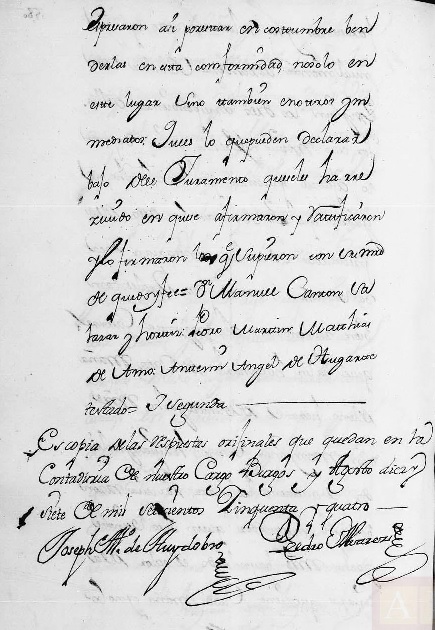 espresaron asi por estar en costumbre ben
derlas en esta conformidad nosolo en
este lugar sino tambien en otros ym
mediatos Pues lo que pueden declarar
bajo del Juramento que seles ha rre
zivido en que se afirmaron y Ratificaron
y lo firmaron los qe. supieron con su mrd
de que doy fee= Dn. Manuel Camon
Pedro Martin Matthias
de Amo Ante mi Angel de Ungarte
testado= Y segunda
Es copia de las respuestas originales que quedan en la
Contaduria de nuestro Cargo Burgos y Agosto diez y
siete de mil setecientos Zinquenta y quatro
Joseph Mª. de Ruydobro Dn. Pedro Alvarez